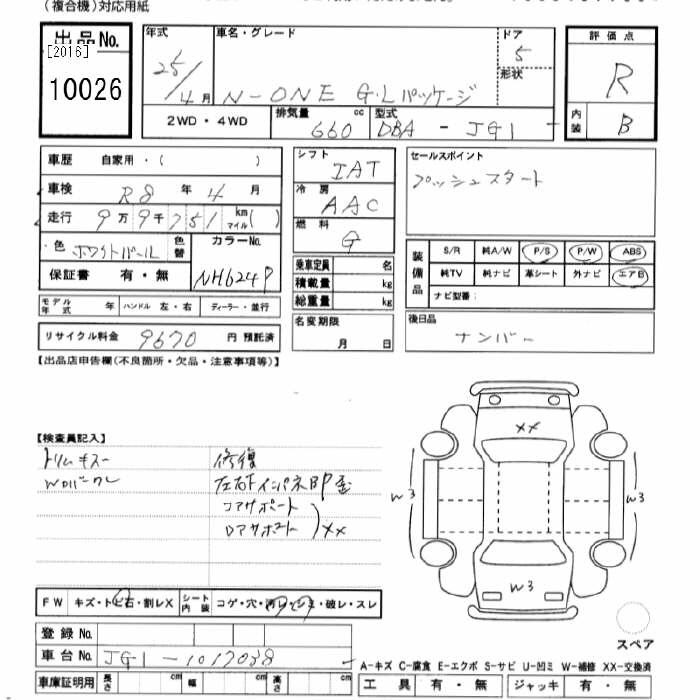 (複合機)対応用紙
出品No.
[2016]
10026
年式 25/4月
車名・グレード N-ONE G・Lパッケージ
ドア 5
形状
評価点 R
内装 B
2WD・4WD
排気量 660 cc
型式 DBA - JG1
車歴 自家用・( )
車検 R8年4月
走行 9万9千751 km マイル( )
色 ホワイトパール 色替
カラーNo. NH624P
保証書 有・無
モデル年式 年 ハンドル 左・右 ディーラー・並行
リサイクル料金 9670 円 預託済
シフト IAT
冷房 AAC
燃料 G
乗車定員 名
積載量 kg
総重量 kg
名変期限 月 日
セールスポイント
プッシュスタート
装備品 S/R 純A/W P/S P/W ABS
純TV 純ナビ 革シート 外ナビ エアB
ナビ型番:
後日品
ナンバー
【出品店申告欄(不良箇所・欠品・注意事項等)】
【検査員記入】
トリムキズ
修復
左右下インパネ部P歪
コアサポート
ロアサポート )××
××
W3
W3
W3
スペア
FW キズ・トビ石・割レX シート内装 コゲ・穴・汚レ・シミ・破レ・スレ
登録No.
車台No. JG1-1017038
車庫証明用 長さ cm 幅 cm 高さ cm
A-キズ C-腐食 E-エクボ S-サビ U-凹ミ W-補修 XX-交換済
工具 有・無 ジャッキ 有・無